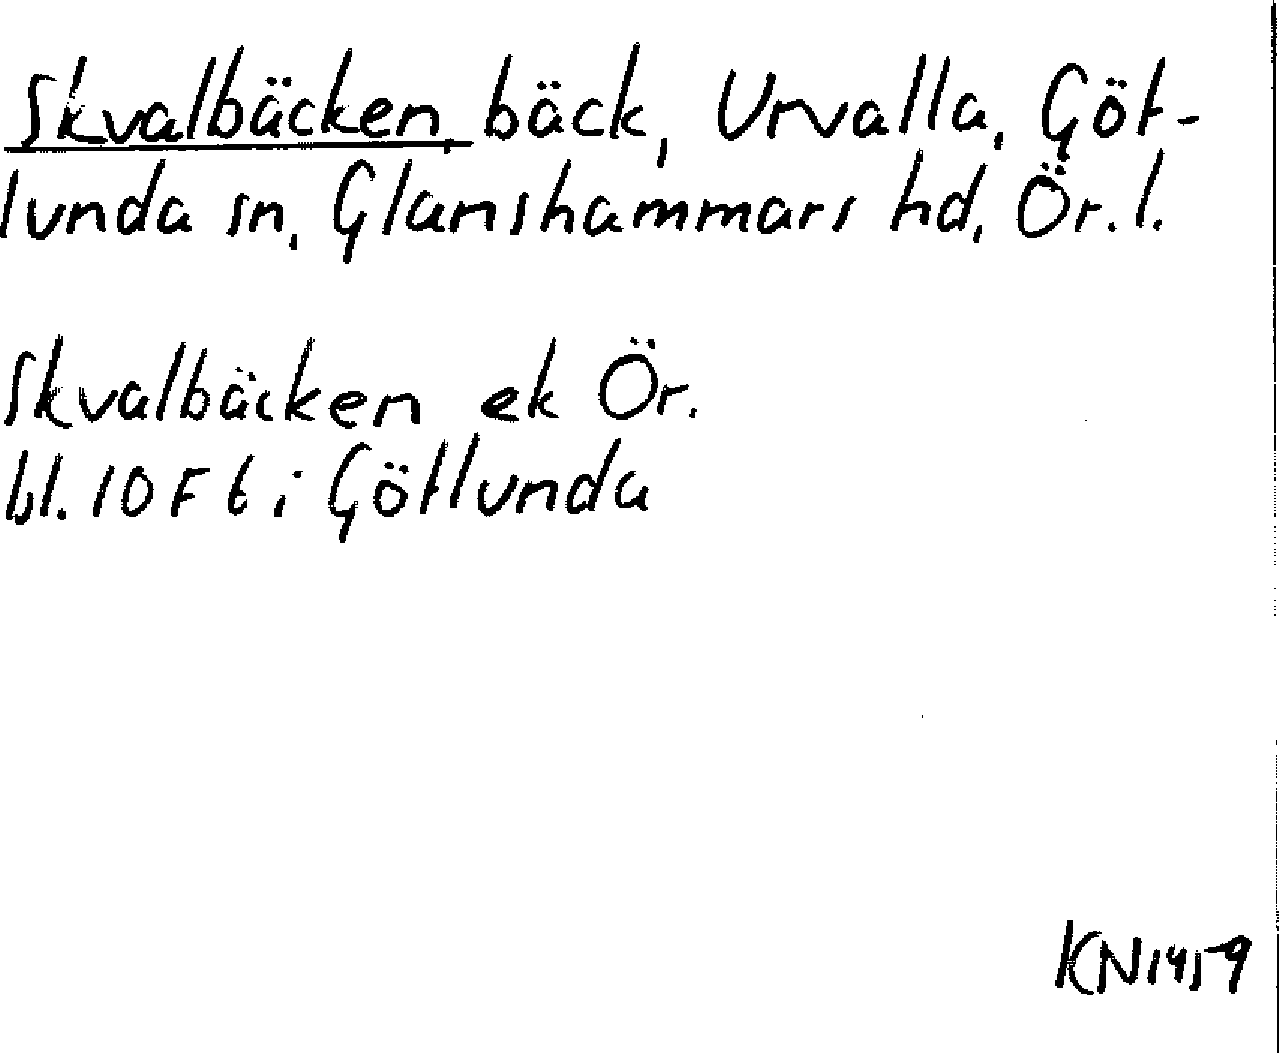 Skvalbäcken, bäck, Urvalla, Göt-
lunda sn, Glanshammars hd, Ör. l.
Skvalbäcken ek Ör.
bl. 10 F 6 i Götlunda
KN1459